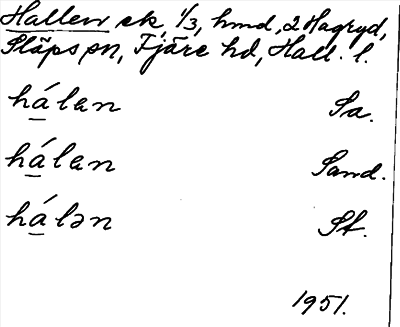 Hallen sk. 1/3, hmd, 2 Hagryd,
Släps sn, Fjäre hd, Hall. l.
hálen Sa.
hálen Sand.
hálən St.
1951.